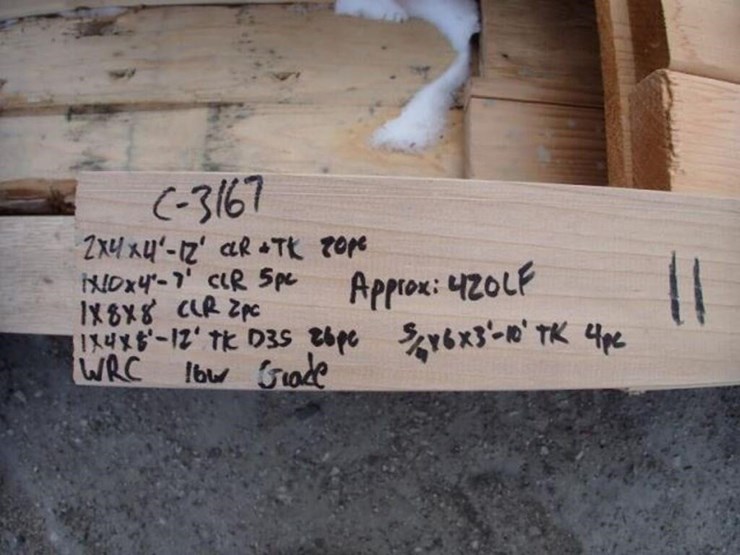 C-3167
2x4x4'-12' CLR + TK 20pc
1x10x4'-7' CLR 5pc
Approx: 420LF
11
1x8x8' CLR 2pc
1x4x8'-12' TK D3S 26pc
5/4x6x3'-10' TK 4pc
WRC low Grade